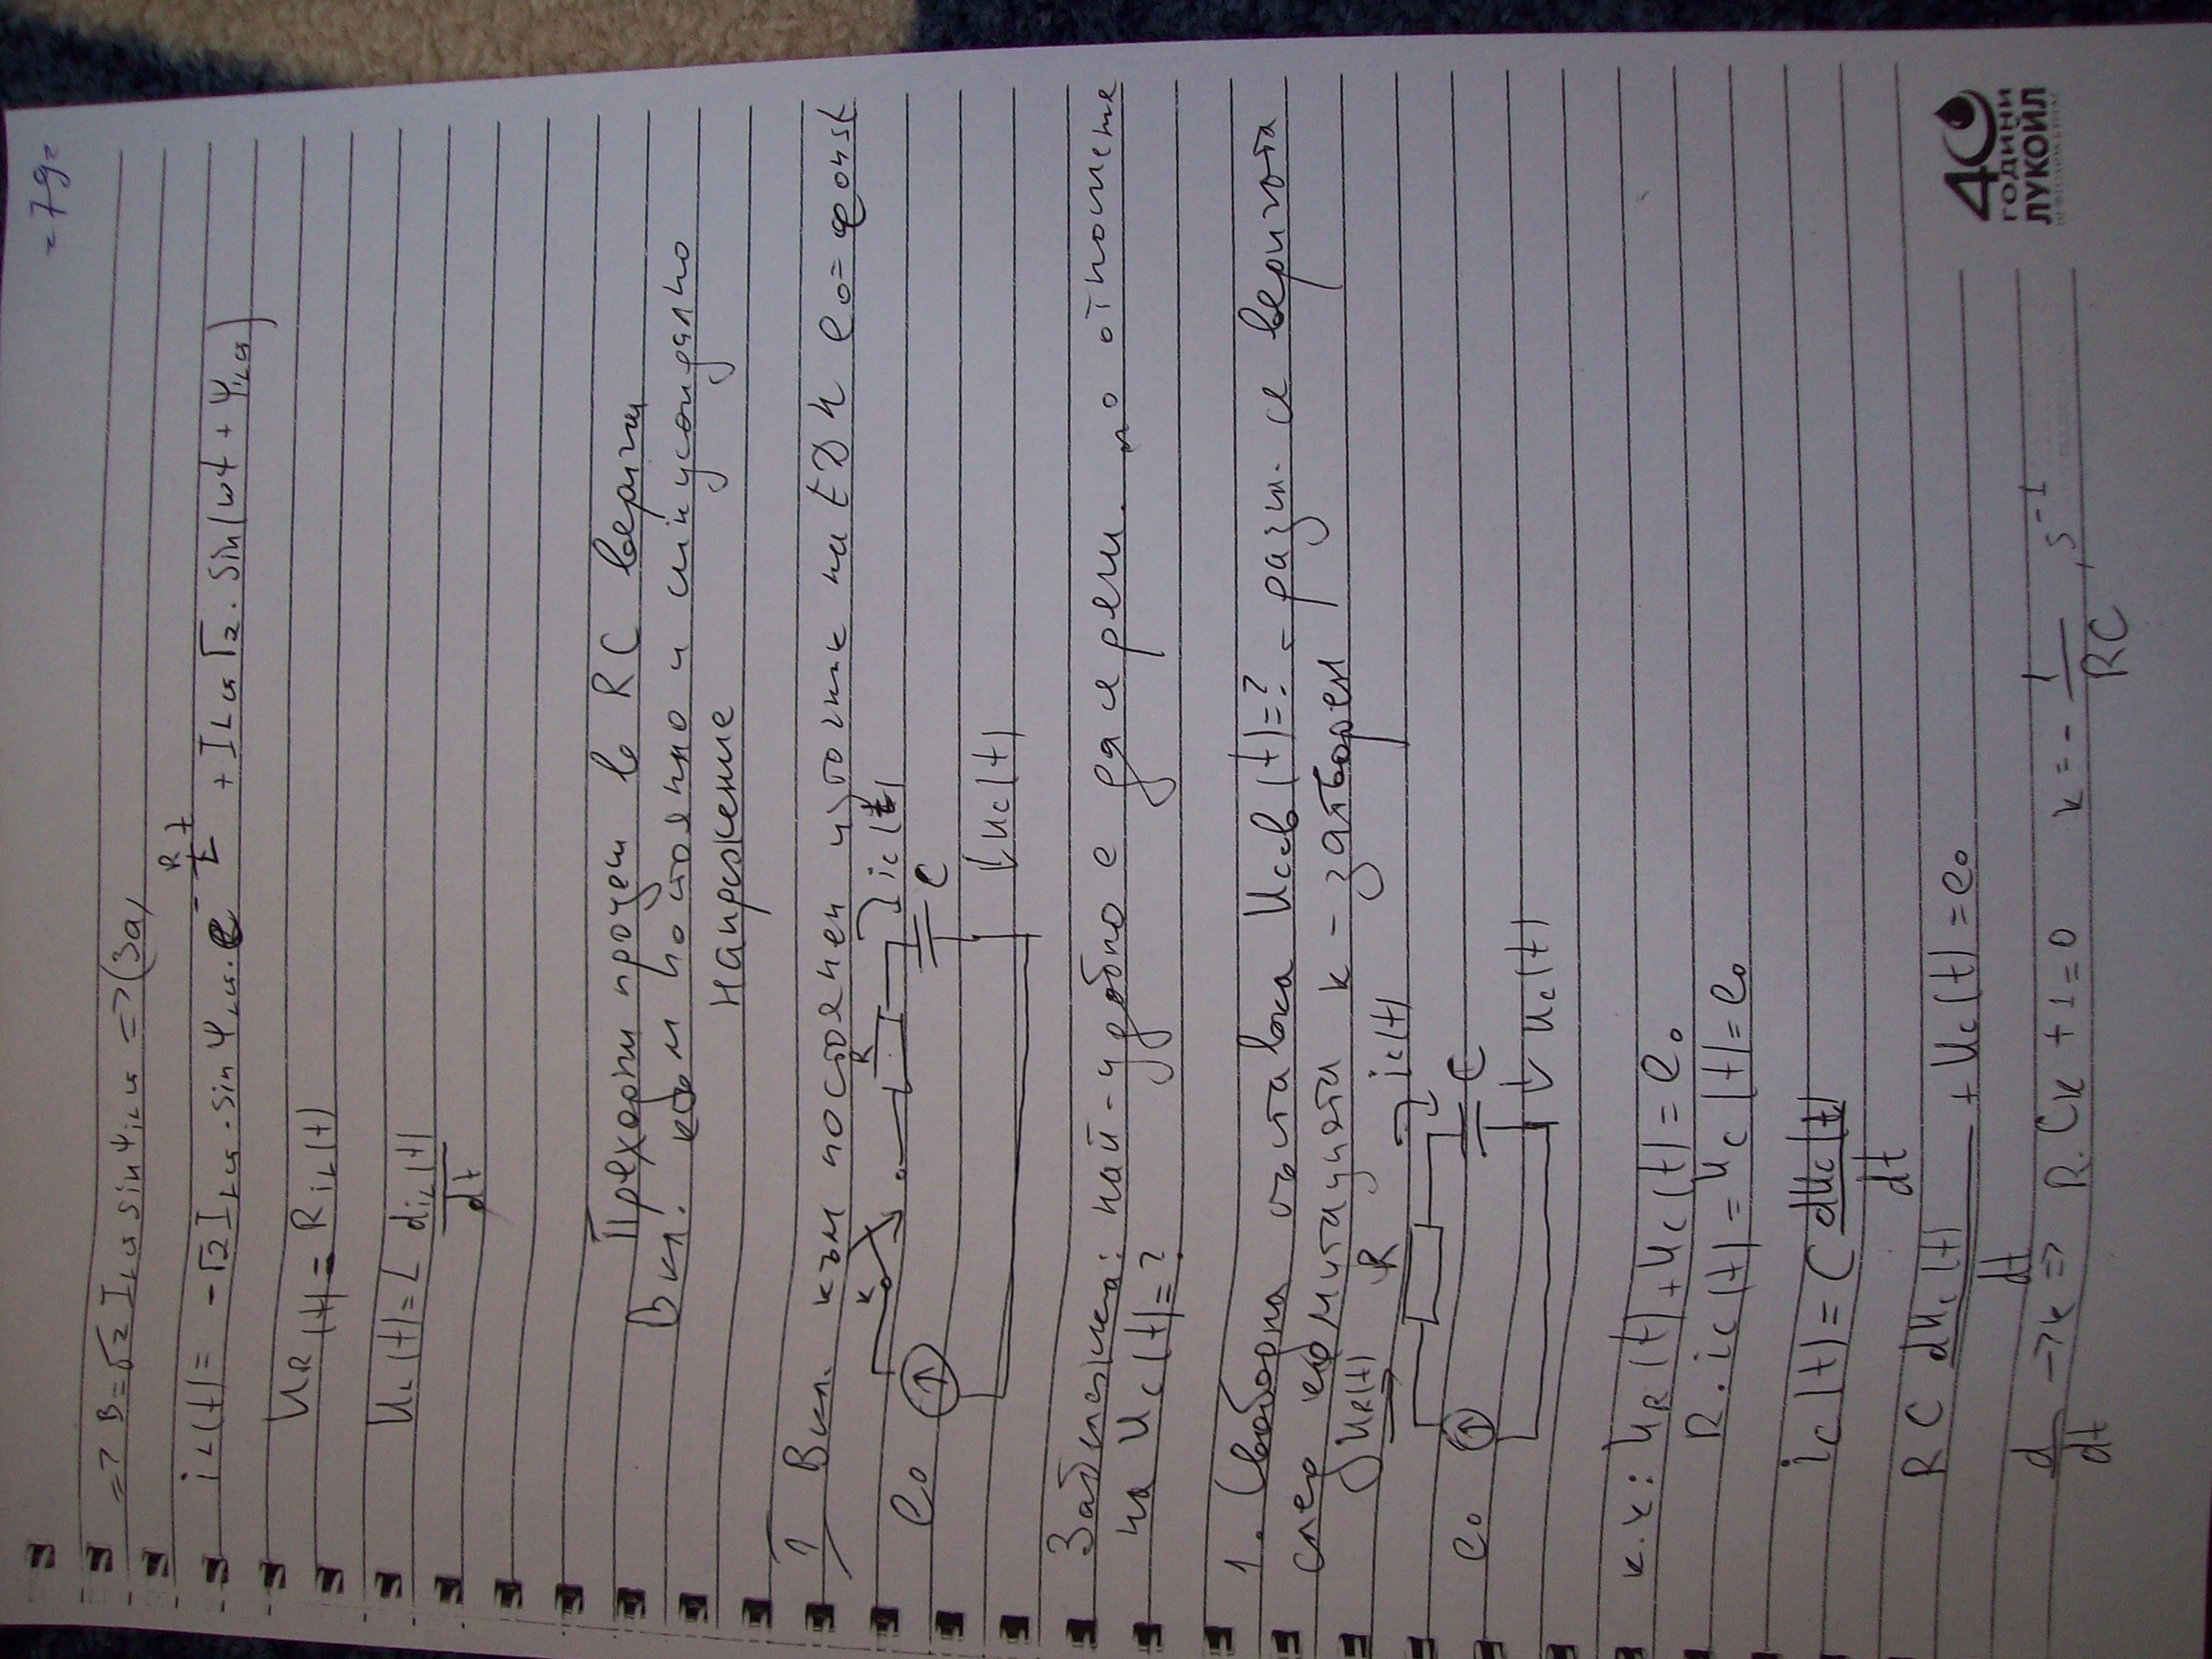 =79=
=> B=√2 I_Lu sin ψ_iLu => (3a)
i_L(t)= -√2 I_Lu . sin ψ_iLu . e^(-R/L t) + I_Lu √2 . sin(ωt + ψ_iLu)
U_R(t)= R i_L(t)
U_L(t)= L di_L(t)/dt
Преходни процеси в RC вериги
Вкл. към постоянно и синусоидално
напрежение
1) Вкл. към постоянен източник на ЕДН e₀=const
к R i_c(t)
e₀ C
u_c(t)
Забележка: най-удобно е да я реш. по отношение
на U_c(t)=?
1. Свободна съставка U_ссв(t)=? - разгл. се веригата
след комутацията к - затворен
U_R(t) R i_c(t)
e₀ C
U_c(t)
к.к: U_R(t)+U_c(t)=e₀
R.i_c(t)=U_c(t)=e₀
i_c(t)=C dU_c(t)/dt
RC dU_c(t)/dt + U_c(t)=e₀
d/dt -> k => R.Ck+1=0 k=-1/RC, s⁻¹
40
ГОДИНИ
ЛУКОЙЛ